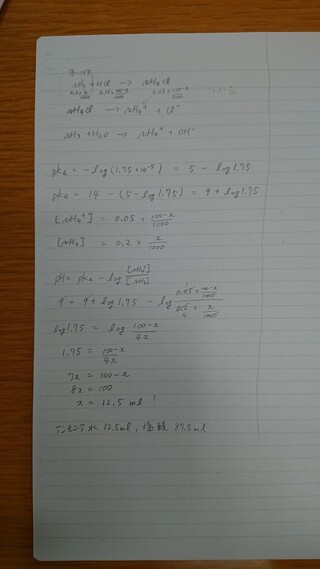 NH3 + HCl → NH4Cl
NH4Cl → NH4+ + Cl-
NH3 + H2O → NH4+ + OH-
pKb = -log(1.75×10^-5) = 5 - log1.75
pKa = 14 - (5 - log1.75) = 9 + log1.75
[NH4+] = 0.05 × (100-x)/1000
[NH3] = 0.2 × x/1000
pH = pKa - log [NH4+]/[NH3]
9 = 9 + log1.75 - log (0.05 × (100-x)/1000)/(0.2 × x/1000)
log1.75 = log (100-x)/4x
1.75 = (100-x)/4x
7x = 100-x
8x = 100
x = 12.5 ml
アンモニア水 12.5ml, 塩酸 87.5ml